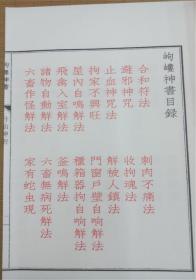 岣嶁神書目錄
合和符法 刺肉不痛法
避邪神咒 收拘魂法
止血神咒法 解被人鎮法
拘家不興旺 門窗戶壁自响解法
屋內自鳴解法 櫃箱器拘自响解法
飛禽入室解法 釜鳴解法
諸物自動解法 六畜無病死解法
六畜作怪解法 家有蛇虫現
岣嶁神書